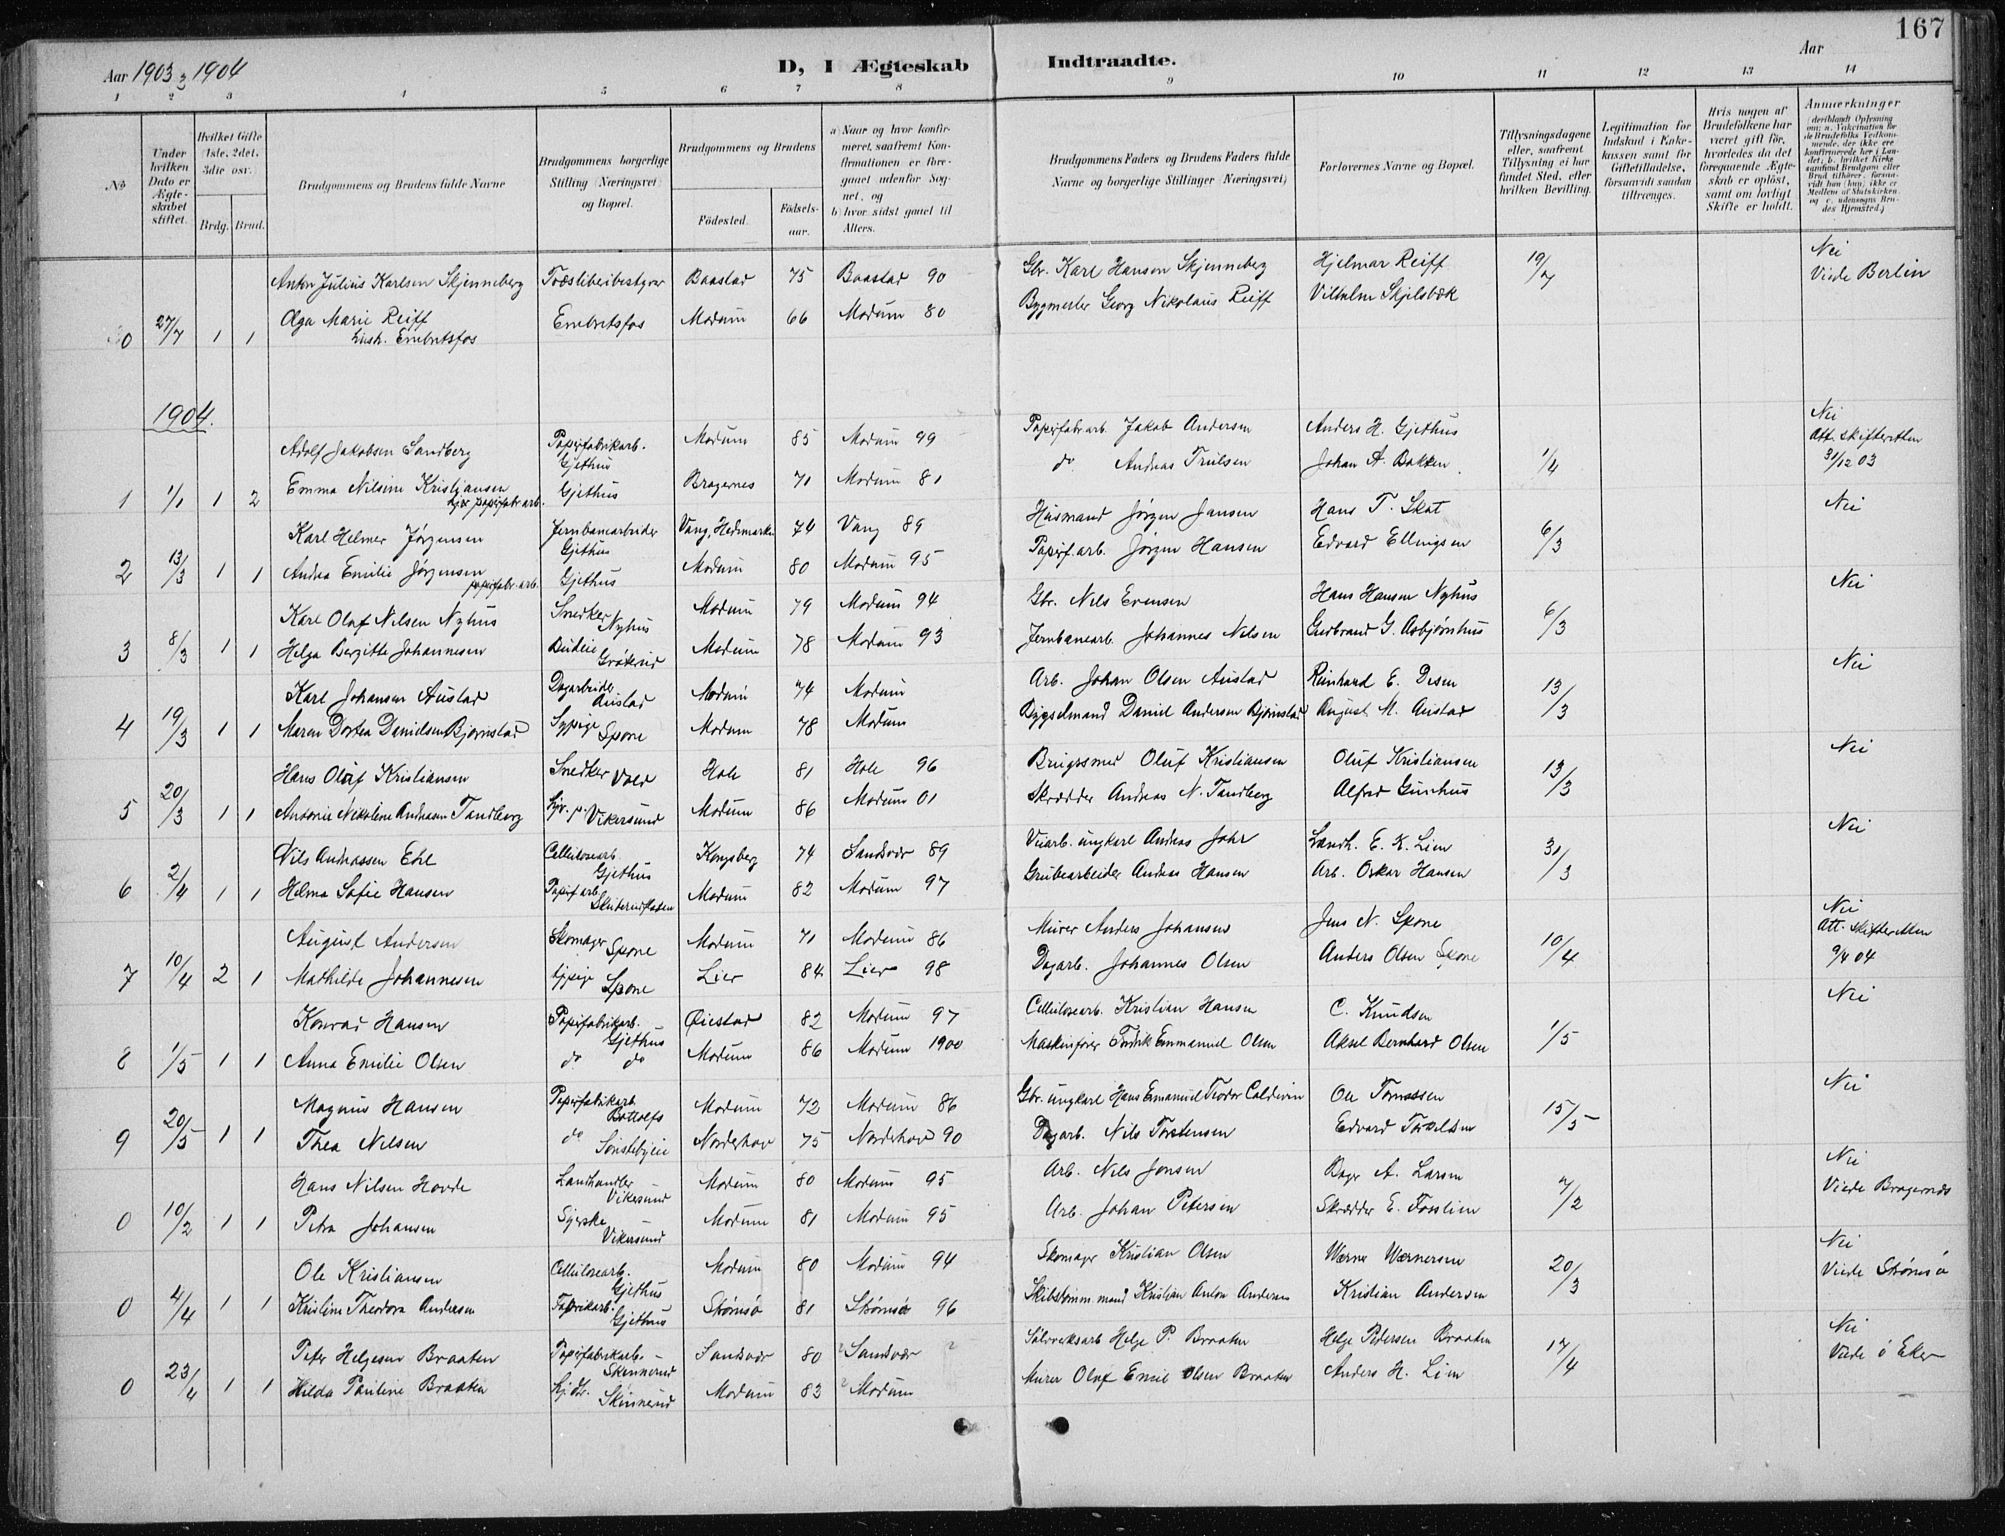 167
Aar 1903 & 1904
D, I Ægteskab Indtraadte.
Aar
1 2 3 4 5 6 7 8 9 10 11 12 13 14
No.
Under hvilken Dato er Ægteskabet stiftet.
Hvilket Gifte (1ste, 2det, 3die osv.)
Brdg. Brud.
Brudgommens og Brudens fulde Navne
Brudgommens borgerlige Stilling (Næringsvei) og Bopæl.
Brudgommens og Brudens
Fødested.
Fødselsaar.
a) Naar og hvor konfirmeret, saafremt Konfirmationen er foregaaet udenfor Sognet, og
b) hvor sidst gaaet til Alters.
Brudgommens Faders og Brudens Faders fulde Navne og borgerlige Stillinger (Næringsvei)
Forlovernes Navne og Bopæl.
Tillysningsdagene eller, saafremt Tillysning ei har fundet Sted, efter hvilken Bevilling.
Legitimation for Indskud i Enkekassen samt for Giftetilladelse, forsaavidt saadan tiltrænges.
Hvis nogen af Brudefolkene har været gift før, hvorledes da det foregaaende Ægteskab er opløst, samt om lovligt Skifte er holdt.
Anmerkninger (deriblandt Oplysning om: a. Vakcination for de Brudefolks Vedkommende, der ikke ere konfirmerede her i Landet; b. hvilket Kirkesamfund Brudgom eller Brud tilhører, forsaavidt han (hun) ikke er Medlem af Statskirken, og c. udensogns Brudes Hjemsted.)
Anton Julius Karlsen Skjenneberg Træsliberibestyrer Baastad 75 Baastad 90 Gbr. Karl Hansen Skjenneberg Hjelmar Reiff 19/7 Nei
Viede Berlin
0 27/7 1 1 Olga Marie Reiff Embretsfos Modum 66 Modum 80 Bygmester Georg Nikolaus Reiff Vilhelm Skjelsbæk
Embretsfos
1904.
Adolf Jakobsen Sandberg Papirfabrikarb. Gjethus Modum 85 Modum 99 Papirfabr arb. Jakob Andersen Anders H. Gjethus Nei
Att. skifteretten
31/12 03
1 1/1 1 2 Emma Nilsine Kristiansen Gjethus Bragernes 71 Modum 81 do Andreas Trulsen Johan A. Bakken 1/4
papirfabr arb.
Karl Helmer Jørgensen Jernbanearbeider Gjethus Vang, Hedmarken 74 Vang 89 Husmand Jørgen Jansen Hans T. Skat Nei
2 13/3 1 1 Andrea Emilie Jørgensen Gjethus Modum 80 Modum 95 Papirf. arb. Jørgen Hansen Edvard Ellingsen 6/3
papirfabr. arb.
Karl Olaf Nilsen Nyhus Snedker Nyhus Modum 79 Modum 94 Gbr. Nils Evensen Hans Hansen Nyhus Nei
3 8/3 1 1 Helga Bergitte Johannesen Budeie Modum 78 Modum 93 Jernbanearb. Johannes Nilsen Gudbrand G. Asbjørnhus 6/3
Karl Johansen Austad Dagarbeider Austad Modum 74 Modum Arb. Johan Olsen Austad Reinhard E. Nei
4 19/3 1 1 Maren Dortea Danielsen Bjørnstad Sypige Spone Modum 78 Modum Bygselmand Daniel Andersen Bjørnstad August M. Austad 13/3
Hans Oluf Kristiansen Snedker Vold Hole 81 Hole 96 Brugssmed Oluf Kristiansen Oluf Kristiansen Nei
5 20/3 1 1 Antonie Nikoline Andreasen Tandberg Vikersund Modum 86 Modum 01 Skrædder Andreas N. Tandberg Alfred Gunhus 13/3
Nils Andreassen Cellulosearb. Gjethus Kongsberg 74 Sandsvær 89 ungkarl Andreas Landh. E. K. Lien Nei
6 2/4 1 1 Helma Sofie Hansen Papirfarb. Modum 82 Modum 97 Grubearbeider Andreas Hansen Arb. Oskar Hansen 31/3
August Andersen Skomager Spone Modum 71 Modum 86 Murer Anders Johansen Jens N. Spone Nei
Att. skifteretten
9/4 04
7 10/4 2 1 Mathilde Johannesen Sypige Spone Lier 84 Lier 98 Dagarb. Johannes Olsen Anders Olsen Spone 10/4
Konrad Hansen Papirfabrikarb. Gjethus Øiestad 82 Modum 97 Cellulosearb. Kristian Hansen C. Knudsen Nei
8 1/5 1 1 Anna Emilie Olsen do do Modum 86 Modum 1900 Maskinfører Fredrik Emmanuel Olsen Aksel Bernhard Olsen 1/5
Magnus Hansen Papirfabrikarb Bottolfs Modum 72 Modum 86 Gbr. ungkarl Hans Emanuel Teodor Caldivin Ole Nei
9 20/5 1 1 Thea Nilsen do Modum Norderhov 75 Norderhov 90 Dagarb. Nils Torstensen Edvard 15/5
Hans Nilsen Hovde Landhandler Vikersund Modum 80 Modum 95 Arb. Nils Jonsen Bager A. Larsen Nei
Viede Bragernæs
0 10/2 1 1 Petra Johansen Syerske Vikersund Modum 81 Modum 95 Arb. Johan Petersen Skrædder E. Fosslien 7/2
Ole Kristiansen Cellulosearb. Gjethus Modum 80 Modum 94 Skomager Kristian Olsen Werner Wernersen Nei
Viede Strømsø
0 4/4 1 1 Kristine Theodora Andersen Fabrikarb. Gjethus Strømsø 81 Strømsø 96 Skibstømm.mand Kristian Anton Andersen Kristian Andersen 20/3
Peter Helgesen Braaten Papirfabrikarb. Skinnerud Sandsvær 80 ? Sandsvær ? Sølvverksarb Helge P. Braaten Helge Pedersen Braaten Nei
Viede Ø Eker
0 23/4 1 1 Hilda Pauline Braaten Skinnerud Modum 83 ? Modum Murer Olaf Emil Olsen Braaten Anders H. Lien 17/4